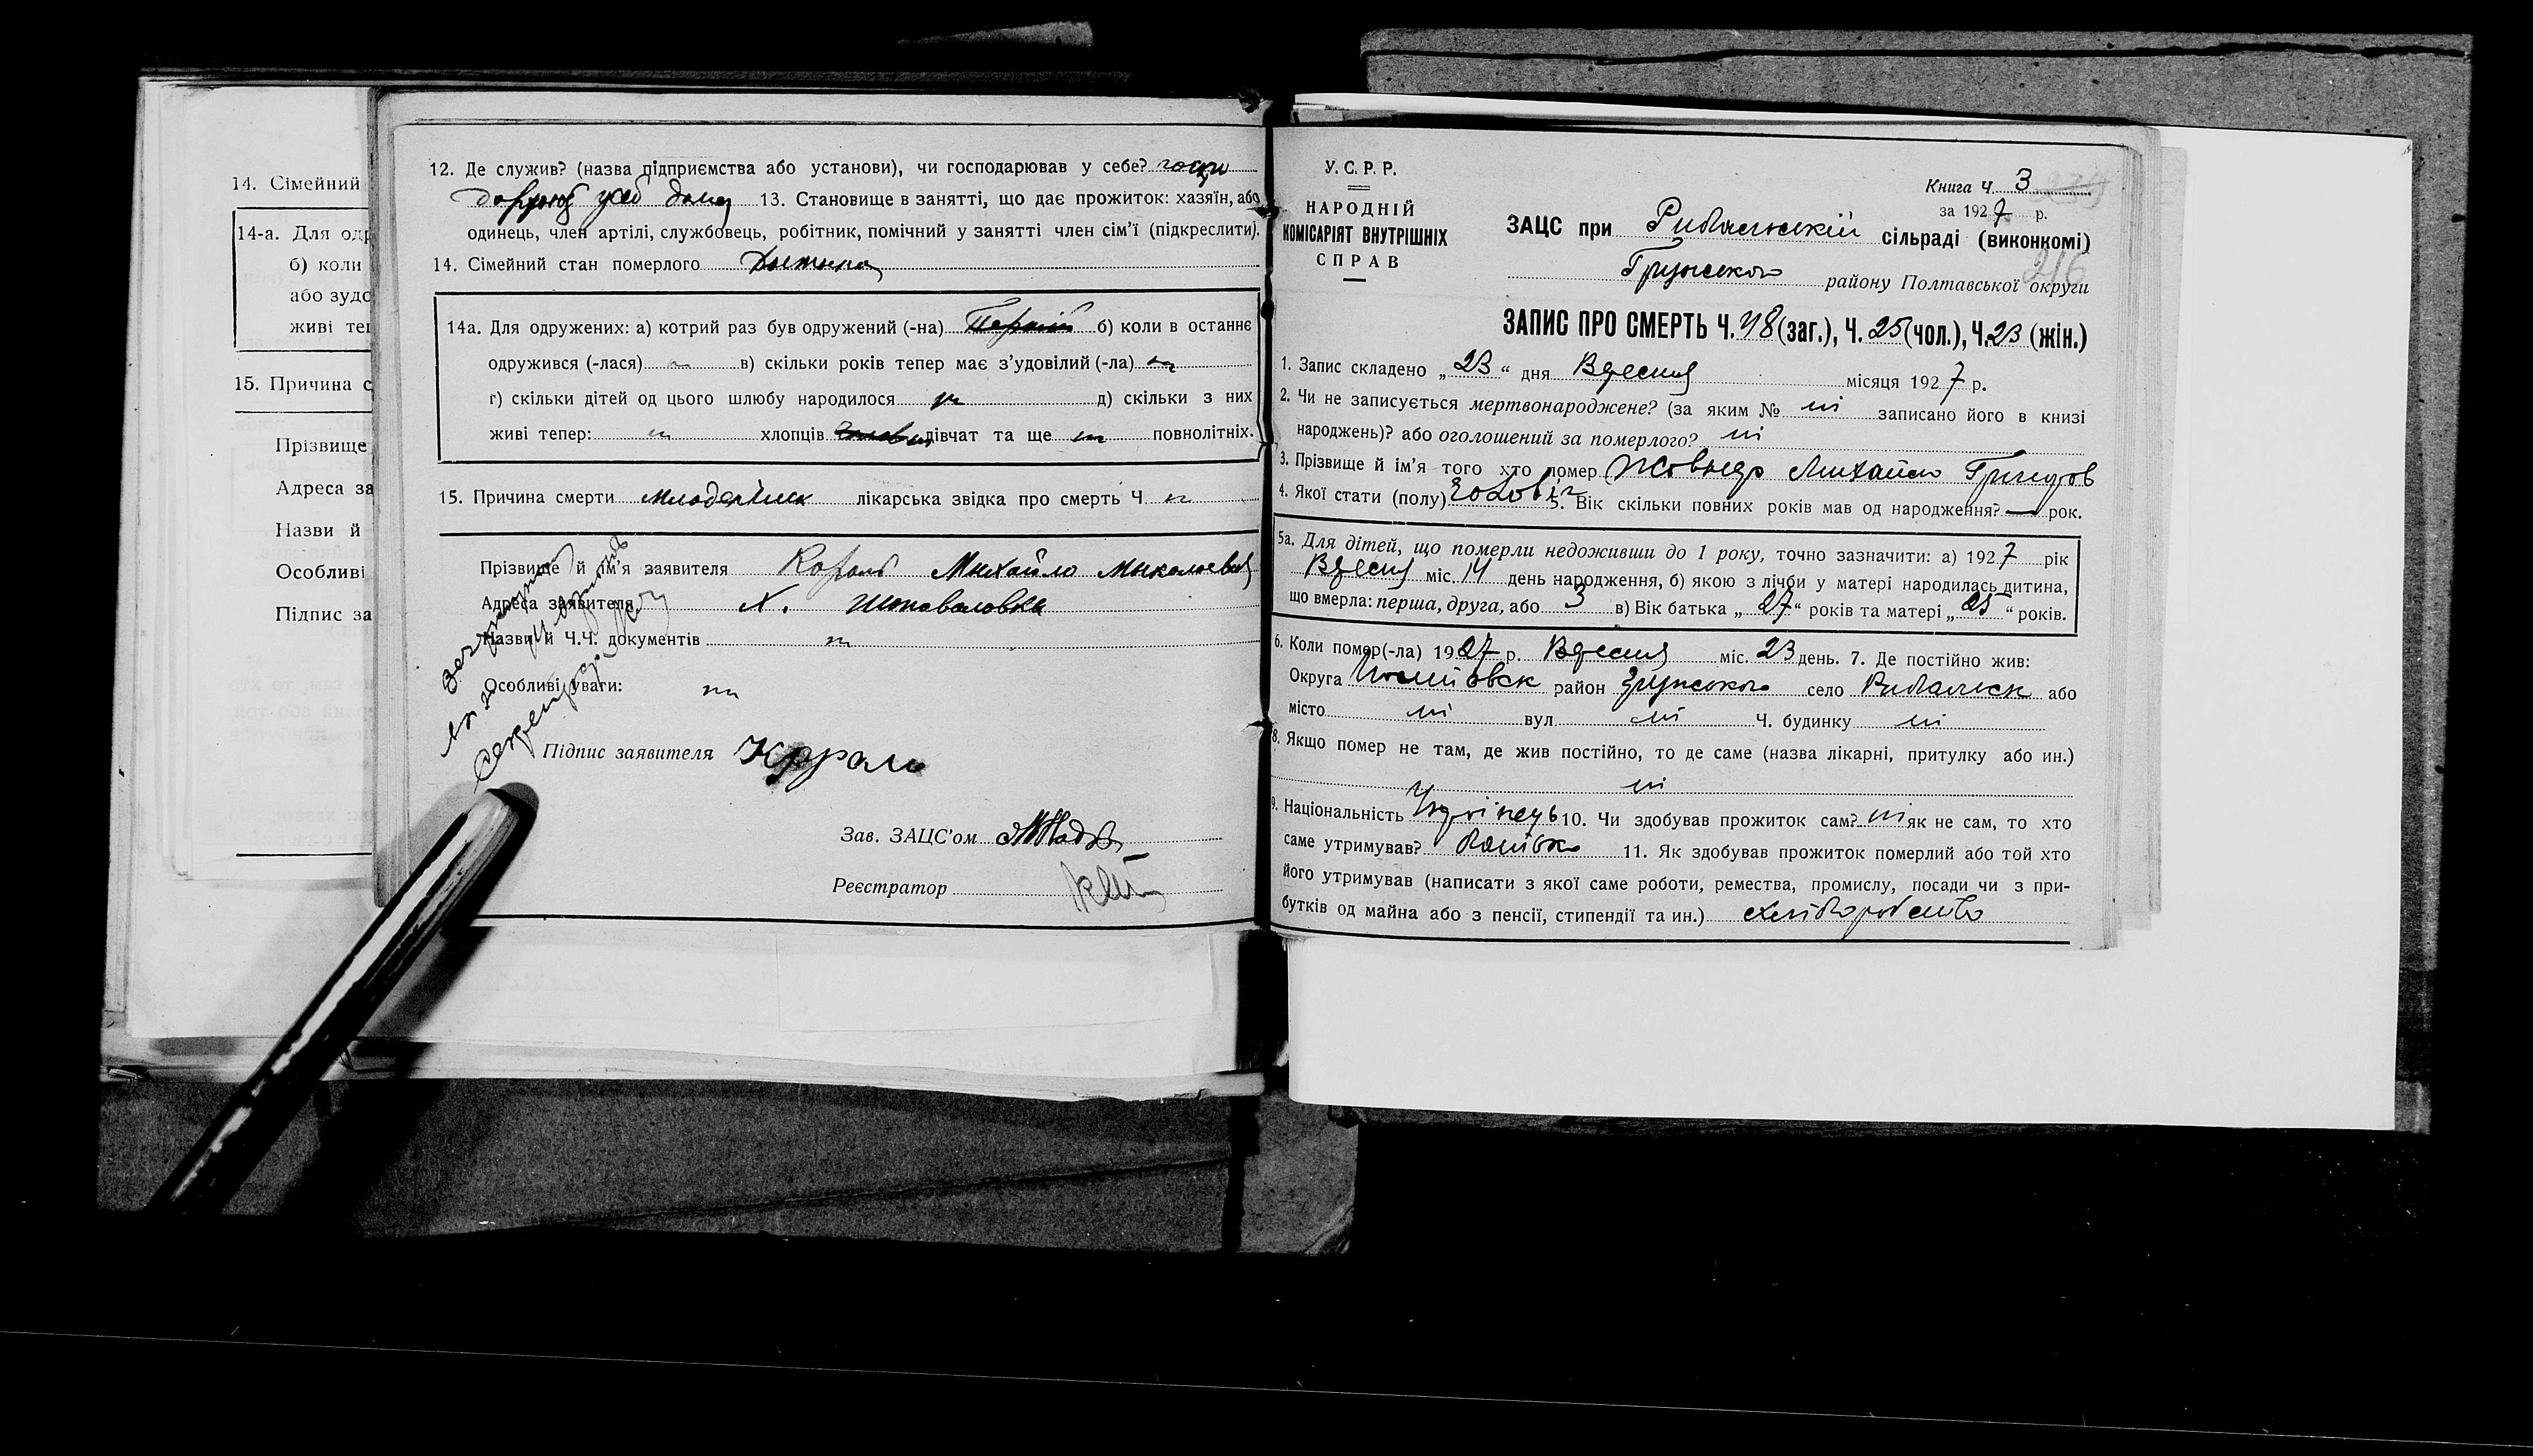 14. Сімейний
14-а. Для одр
б) коли
або зудо
живі теп
15. Причина с
Прізвище
Адреса за
Назви й
Особливі
Підпис за
12. Де служив? (назва підприємства або установи), чи господарював у себе? госпо
13. Становище в занятті, що дає прожиток: хазяїн, або
одинець, член артілі, службовець, робітник, помічний у занятті член сім’ї (підкреслити).
14. Сімейний стан померлого Дытына
14а. Для одружених: а) котрий раз був одружений (-на) б) коли в останнє
одружився (-лася) в) скільки років тепер має з’удовілий (-ла)
г) скільки дітей од цього шлюбу народилося д) скільки з них
живі тепер: хлопців дівчат та ще повнолітніх.
15. Причина смерти лікарська звідка про смерть Ч
Прізвище й ім’я заявителя Король Михайло Миколаевич
Адреса заявителя Х. Шоповаловка
Назви й Ч.Ч. документів
Особливі уваги:
Підпис заявителя Король
Зав. ЗАЦС’ом
Реєстратор
У. С. Р. Р.
НАРОДНІЙ
КОМІСАРІЯТ ВНУТРІШНІХ
СПРАВ
Книга ч. 3
за 1927 р.
ЗАЦС при Рибальській сільраді (виконкомі)
216
Грунського району Полтавської округи
ЗАПИС ПРО СМЕРТЬ Ч. 48 (заг.), Ч. 25 (чол.), Ч. 23 (жін.)
1. Запис складено „23“ дня Вересня місяця 1927 р.
2. Чи не записується мертвонароджене? (за яким № ні записано його в книзі
народжень)? або оголошений за померлого? ні
3. Прізвище й ім’я того хто помер Михайло Григоров
4. Якої стати (полу) Чоловік 5. Вік скільки повних років мав од народження? — рок.
5а. Для дітей, що померли недоживши до 1 року, точно зазначити: а) 1927 рік
Вересня міс. 14 день народження, б) якою з лічби у матері народилась дитина,
що вмерла: перша, друга, або 3 в) Вік батька „27“ років та матері „25“ років.
6. Коли помер(-ла) 1927 р. Вересня міс. 23 день. 7. Де постійно жив:
Округа район Грунського село Рибальск або
місто ні вул ні Ч. будинку ні
8. Якщо помер не там, де жив постійно, то де саме (назва лікарні, притулку або ин.)
ні
9. Національність Українець 10. Чи здобував прожиток сам? ні як не сам, то хто
саме утримував? Батько 11. Як здобував прожиток померлий або той хто
його утримував (написати з якої саме роботи, ремества, промислу, посади чи з при-
бутків од майна або з пенсії, стипендії та ин.) хліборобство